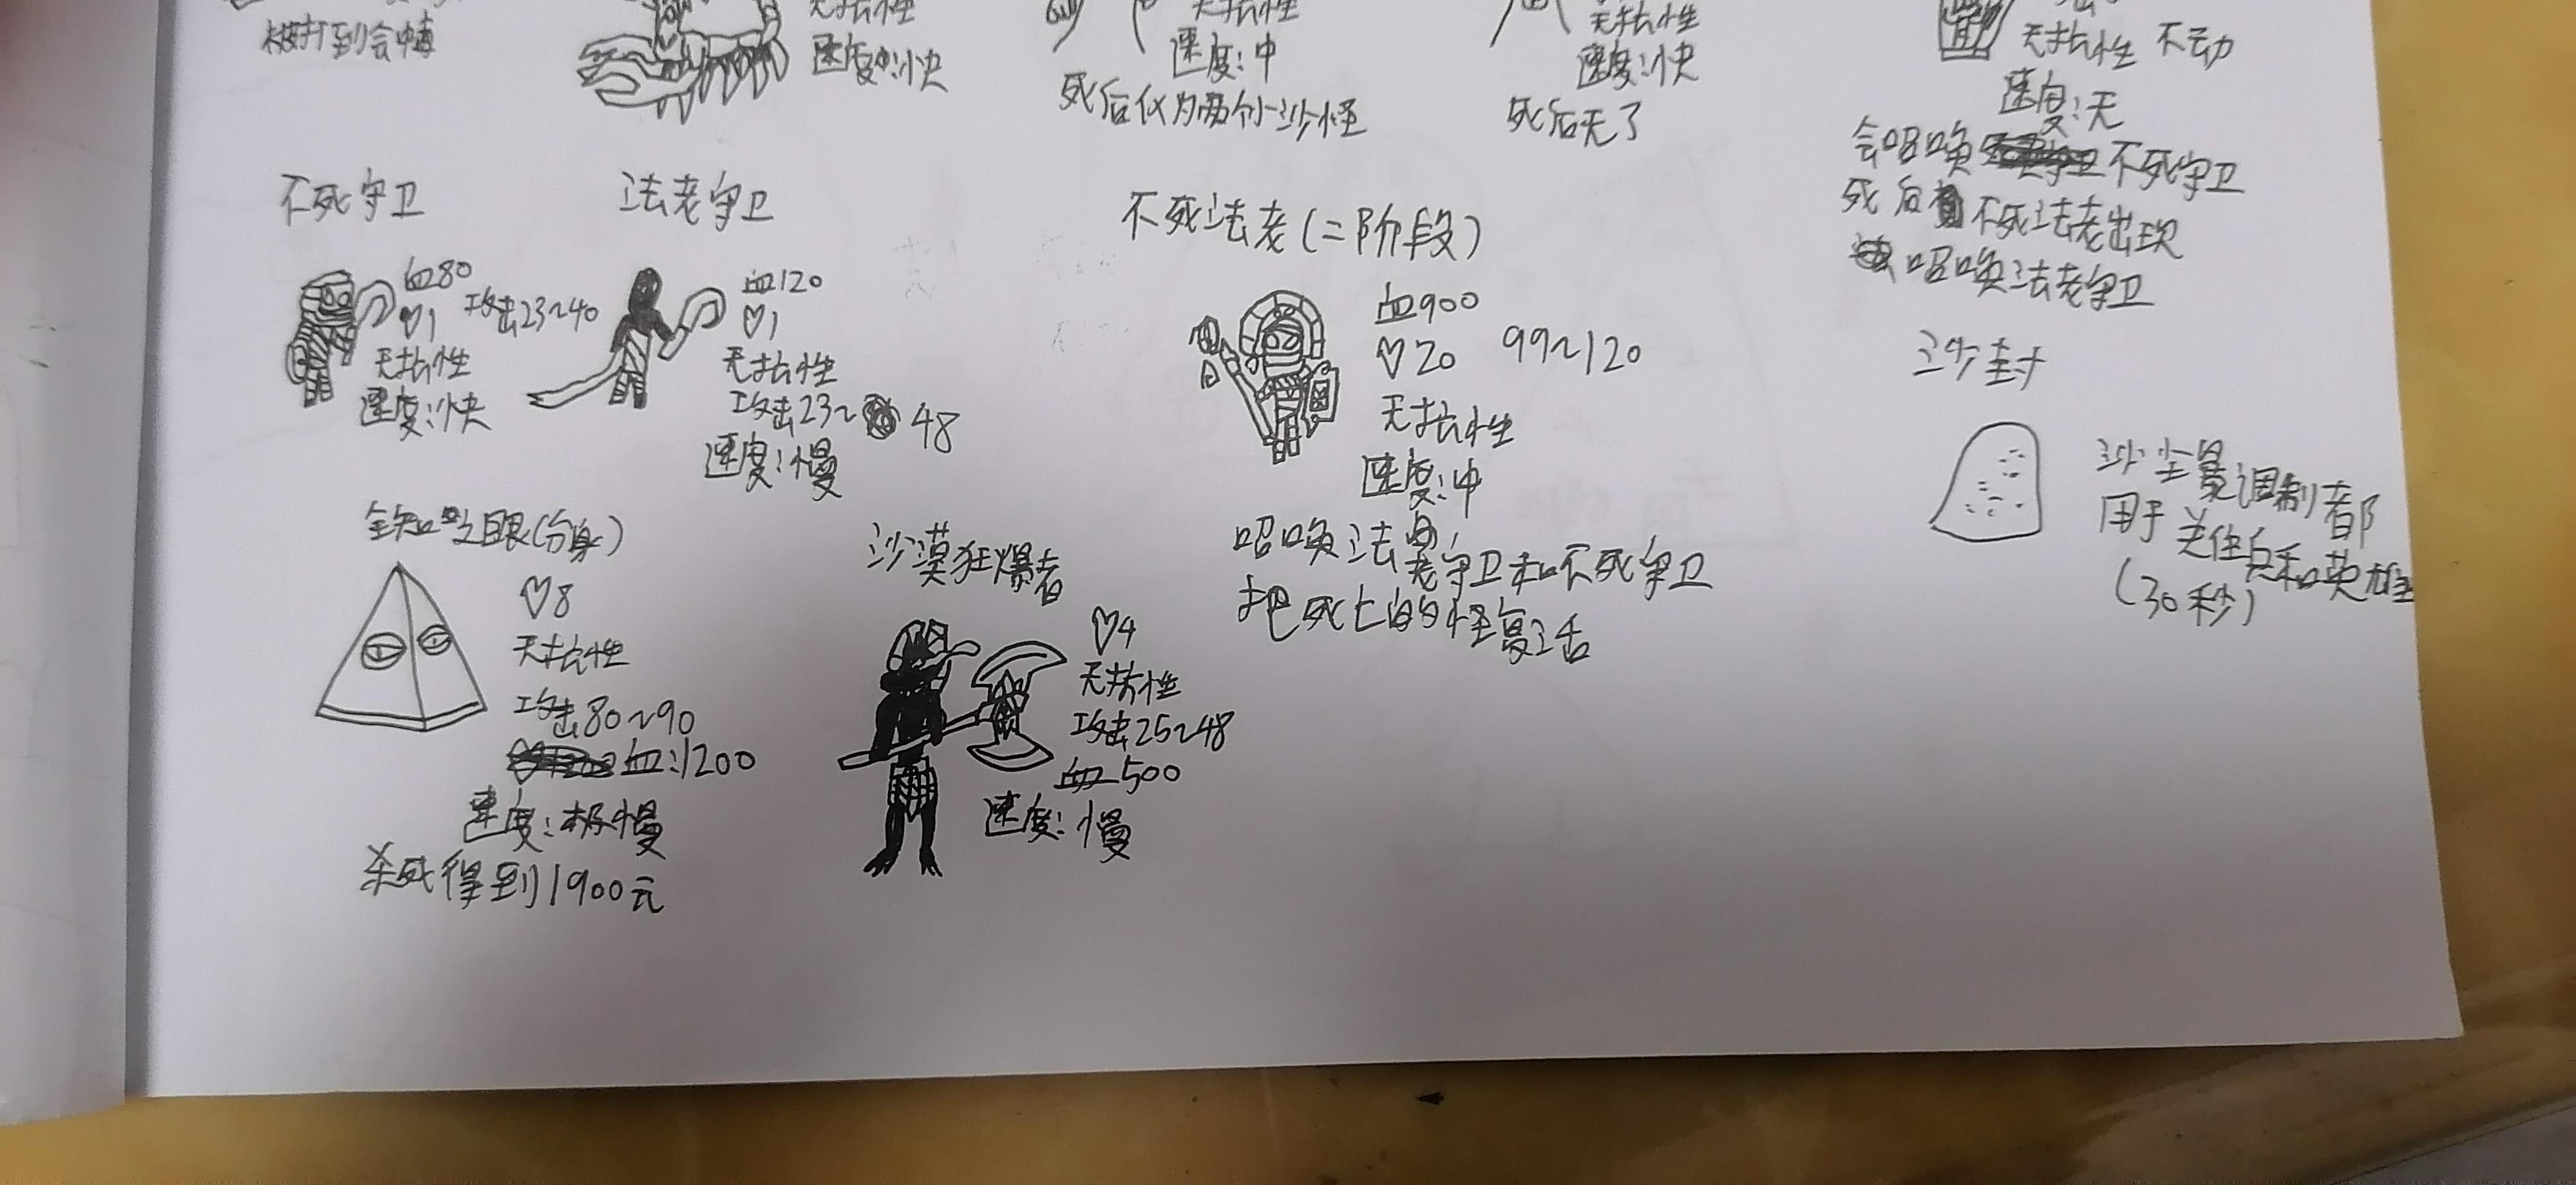 被打到会中毒
无抗性
速度:快
无抗性
速度:中
死后化为两个小沙怪
无抗性
速度:快
死后无了
无抗性 不动
速度:无
会召唤不死守卫
死后不死法老出现
召唤法老守卫
不死守卫
血80
♡1 攻击23~40
无抗性
速度:快
法老守卫
血120
♡1
无抗性
攻击23~48
速度:慢
不死法老(二阶段)
血900
♡20 99~120
无抗性
速度:中
召唤法老守卫和不死守卫
把死亡的怪复活
沙封
沙尘暴调制者
用于关住兵和英雄
(30秒)
全知之眼(分身)
♡8
无抗性
攻击80~90
血:1200
速度:极慢
杀死得到1900元
沙漠狂爆者
♡4
无抗性
攻击25~48
血500
速度:慢